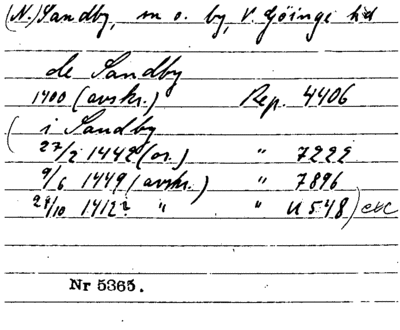 (N.) Sandby, m o. by, V. Göinge hd
de Sandby
1400 (avskr.) Rep. 4406
( i Sandby
27/2 1442 (or.) " 7222
9/6 1449 (avskr.) " 7896
28/10 1412 i " " U 548) etc
Nr 5365.